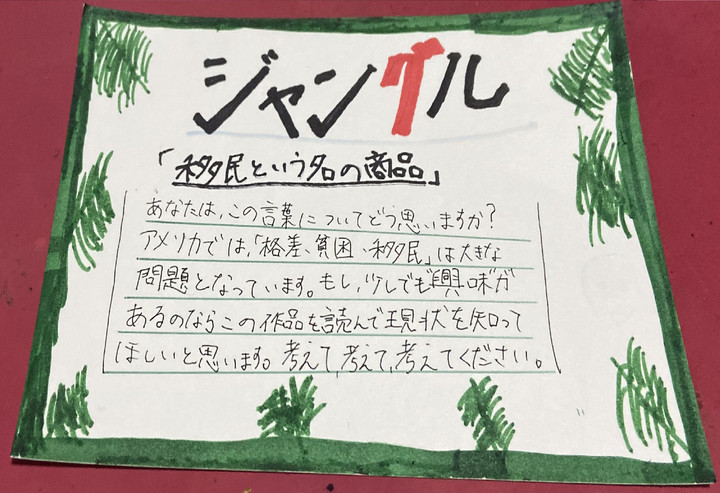 ジャングル
「移民という名の商品」
あなたは、この言葉についてどう思いますか?
アメリカでは、「格差、貧困、移民」は大きな
問題となっています。もし、少しでも興味が
あるのならこの作品を読んで現状を知って
ほしいと思います。考えて、考えて、考えてください。